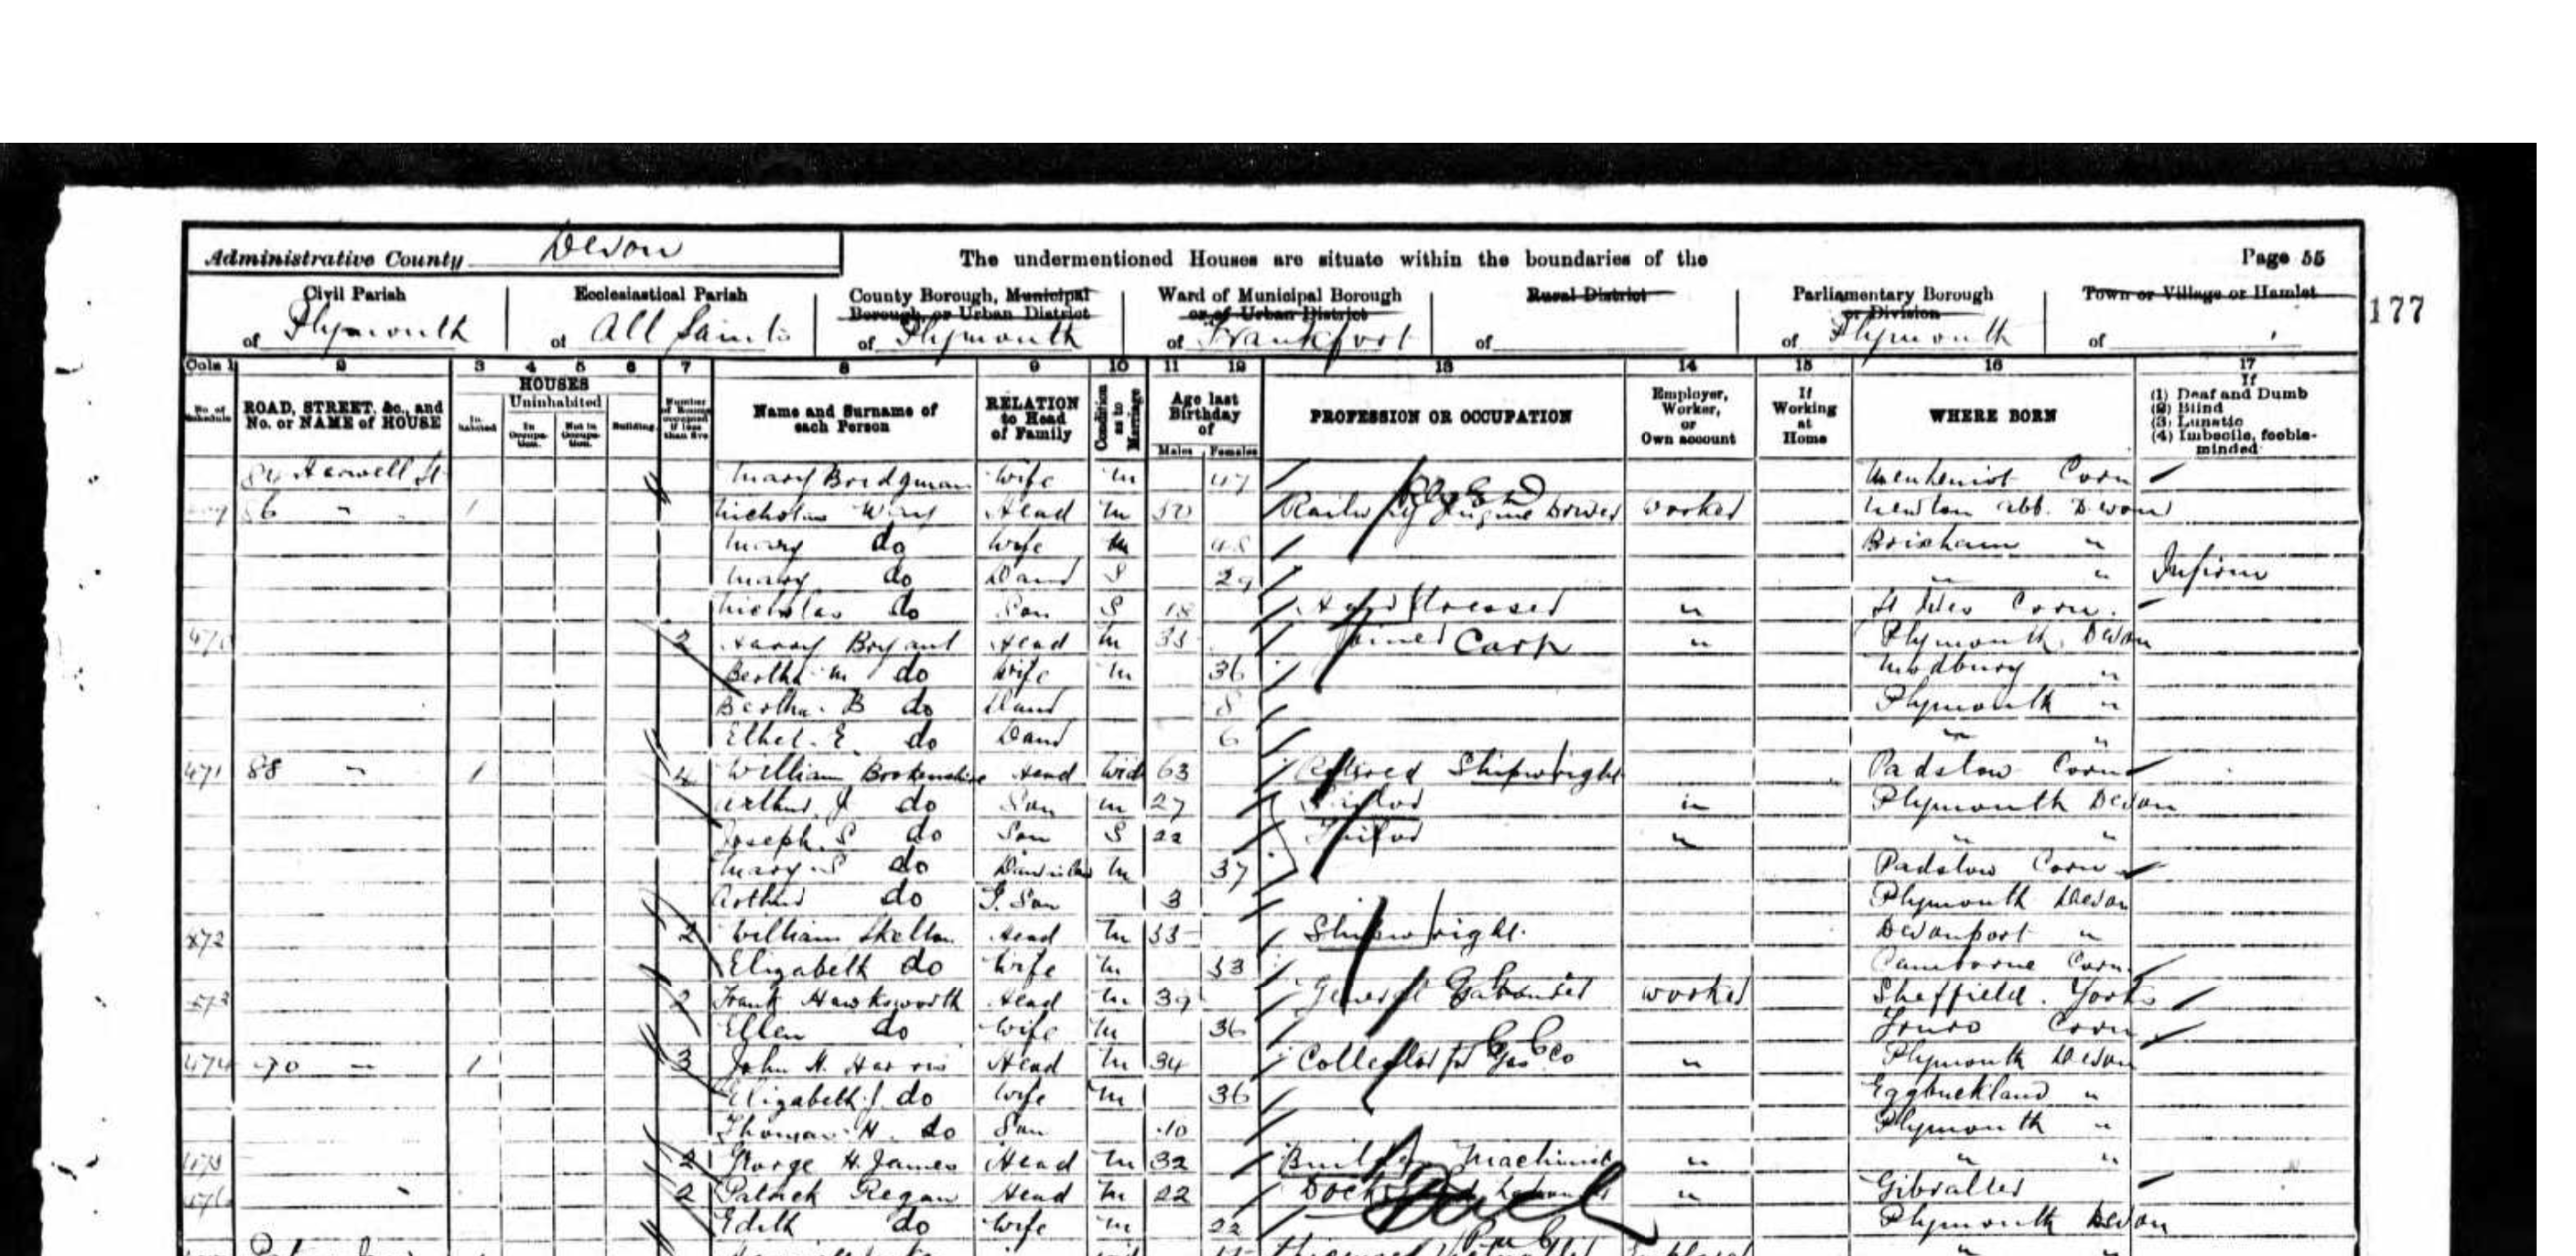 Administrative County Devon
The undermentioned Houses are situate within the boundaries of the
Page 55
Civil Parish
of Plymouth
Ecclesiastical Parish
of All Saints
County Borough, Municipal
Borough, or Urban District
of Plymouth
Ward of Municipal Borough
or of Urban District
of Frankfort
Rural District
of
Parliamentary Borough
or Division
of Plymouth
Town or Village or Hamlet
of
177
Cols 1 2 3 4 5 6 7 8 9 10 11 12 13 14 15 16 17
No. of Schedule
ROAD, STREET, &c., and No. or NAME of HOUSE
HOUSES
In-habited
Uninhabited
In Occupa-tion.
Not in Occupa-tion.
Building.
Number of Rooms occupied if less than five
Name and Surname of each Person
RELATION to Head of Family
Condition as to Marriage
Age last Birthday of
Males Females
PROFESSION OR OCCUPATION
Employer, Worker, or Own account
If Working at Home
WHERE BORN
If
(1) Deaf and Dumb
(2) Blind
(3) Lunatic
(4) Imbecile, feeble-minded
84 Harwell St Mary Bridgman Wife M 47 Menheniot Corn
86 " 1 Nicholas Head M 50 Railway Engine Driver Worker Newton Abb. Devon
Mary do Wife M 48 Brixham "
Mary do Daur S 29 " " Infirm
Nicholas do Son S 18 " St Corn.
470 2 Harry Bryant Head M 35 Joiner Carp " Plymouth Devon
Bertha M do Wife M 36 Modbury "
Bertha. B do Daur 8 Plymouth "
Ethel. E. do Daur 6 " "
471 88 " 1 4 William Brokenshire Head Wid 63 Retired Shipwright Padstow Corn
Arthur. J do Son M 27 Tailor " Plymouth Devon
Joseph. S do Son S 22 Tailor " " "
Mary. S do M 37 Padstow Corn
Arthur do G. Son 3 Plymouth Devon
472 2 William Skelton Head M 53 Shipwright. Devonport "
Elizabeth do Wife M 53 Camborne Corn.
473 2 Frank Hawksworth Head M 39 General Labourer Worker Sheffield. Yorks
Ellen do Wife M 36 Truro Corn
474 90 " 1 3 John H. Harris Head M 34 Collector for Gas Co " Plymouth Devon
Elizabeth. J. do Wife M 36 Eggbuckland "
Thomas. H. do Son 10 Plymouth "
475 2 George H. James Head M 32 Machinist " " "
476 2 Patrick Regan Head M 22 Labourer " Gibralter
Edith do Wife M 22 Plymouth Devon